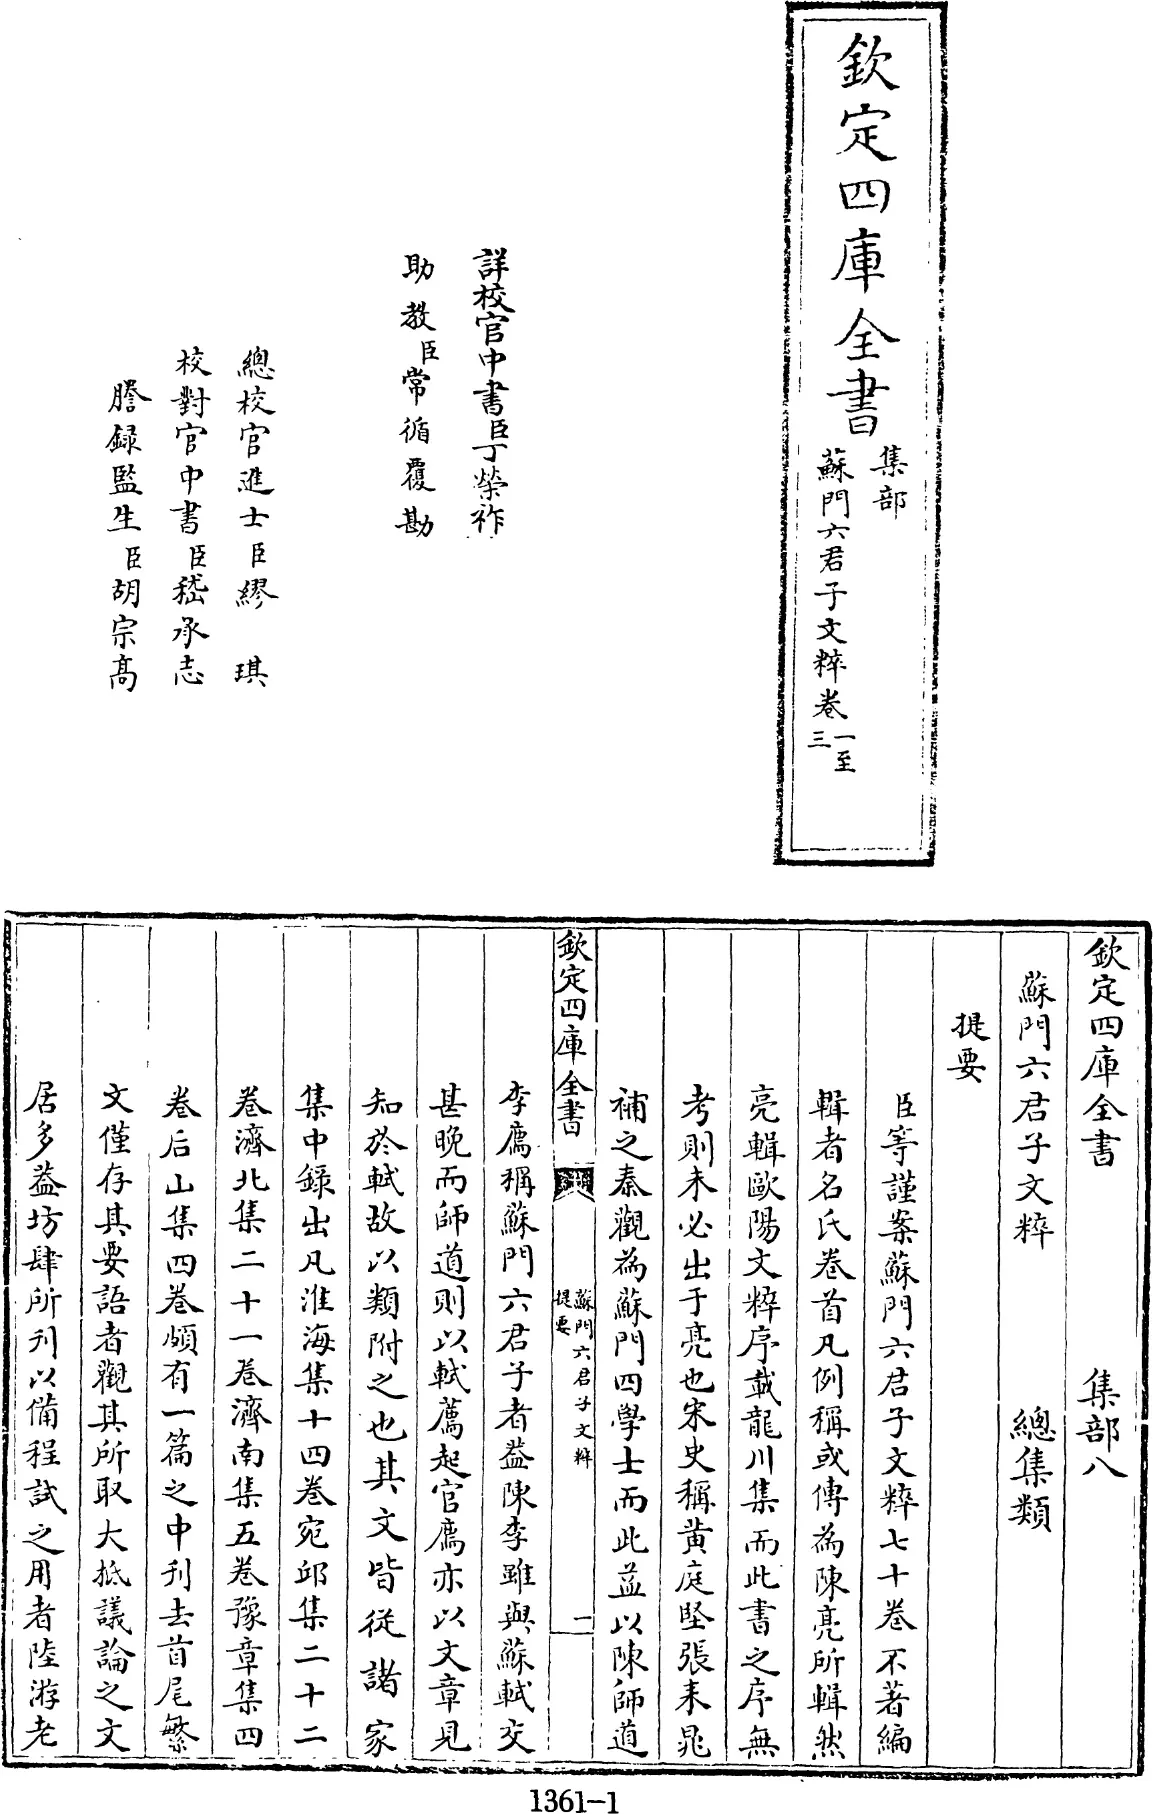 欽定四庫全書
集部
蘇門六君子文粹卷一至三
詳校官中書臣丁榮祚
助教臣常循覆勘
總校官進士臣繆琪
校對官中書臣嵇承志
謄録監生臣胡宗髙
欽定四庫全書 集部八
蘇門六君子文粹 總集類
提要
臣等謹案蘇門六君子文粹七十卷不著編
輯者名氏卷首凡例稱或傳為陳亮所輯然
亮輯歐陽文粹序載龍川集而此書之序無
考則未必出于亮也宋史稱黄庭堅張耒晁
補之秦觀為蘇門四學士而此益以陳師道
欽定四庫全書
蘇門六君子文粹
提要
一
李廌稱蘇門六君子者葢陳李雖與蘇軾交
甚晚而師道則以軾薦起官廌亦以文章見
知於軾故以類附之也其文皆從諸家
集中録出凡淮海集十四卷宛邱集二十二
卷濟北集二十一卷濟南集五卷豫章集四
卷后山集四卷頗有一篇之中刋去首尾繁
文僅存其要語者觀其所取大抵議論之文
居多葢坊肆所刋以備程試之用者陸游老
1361-1